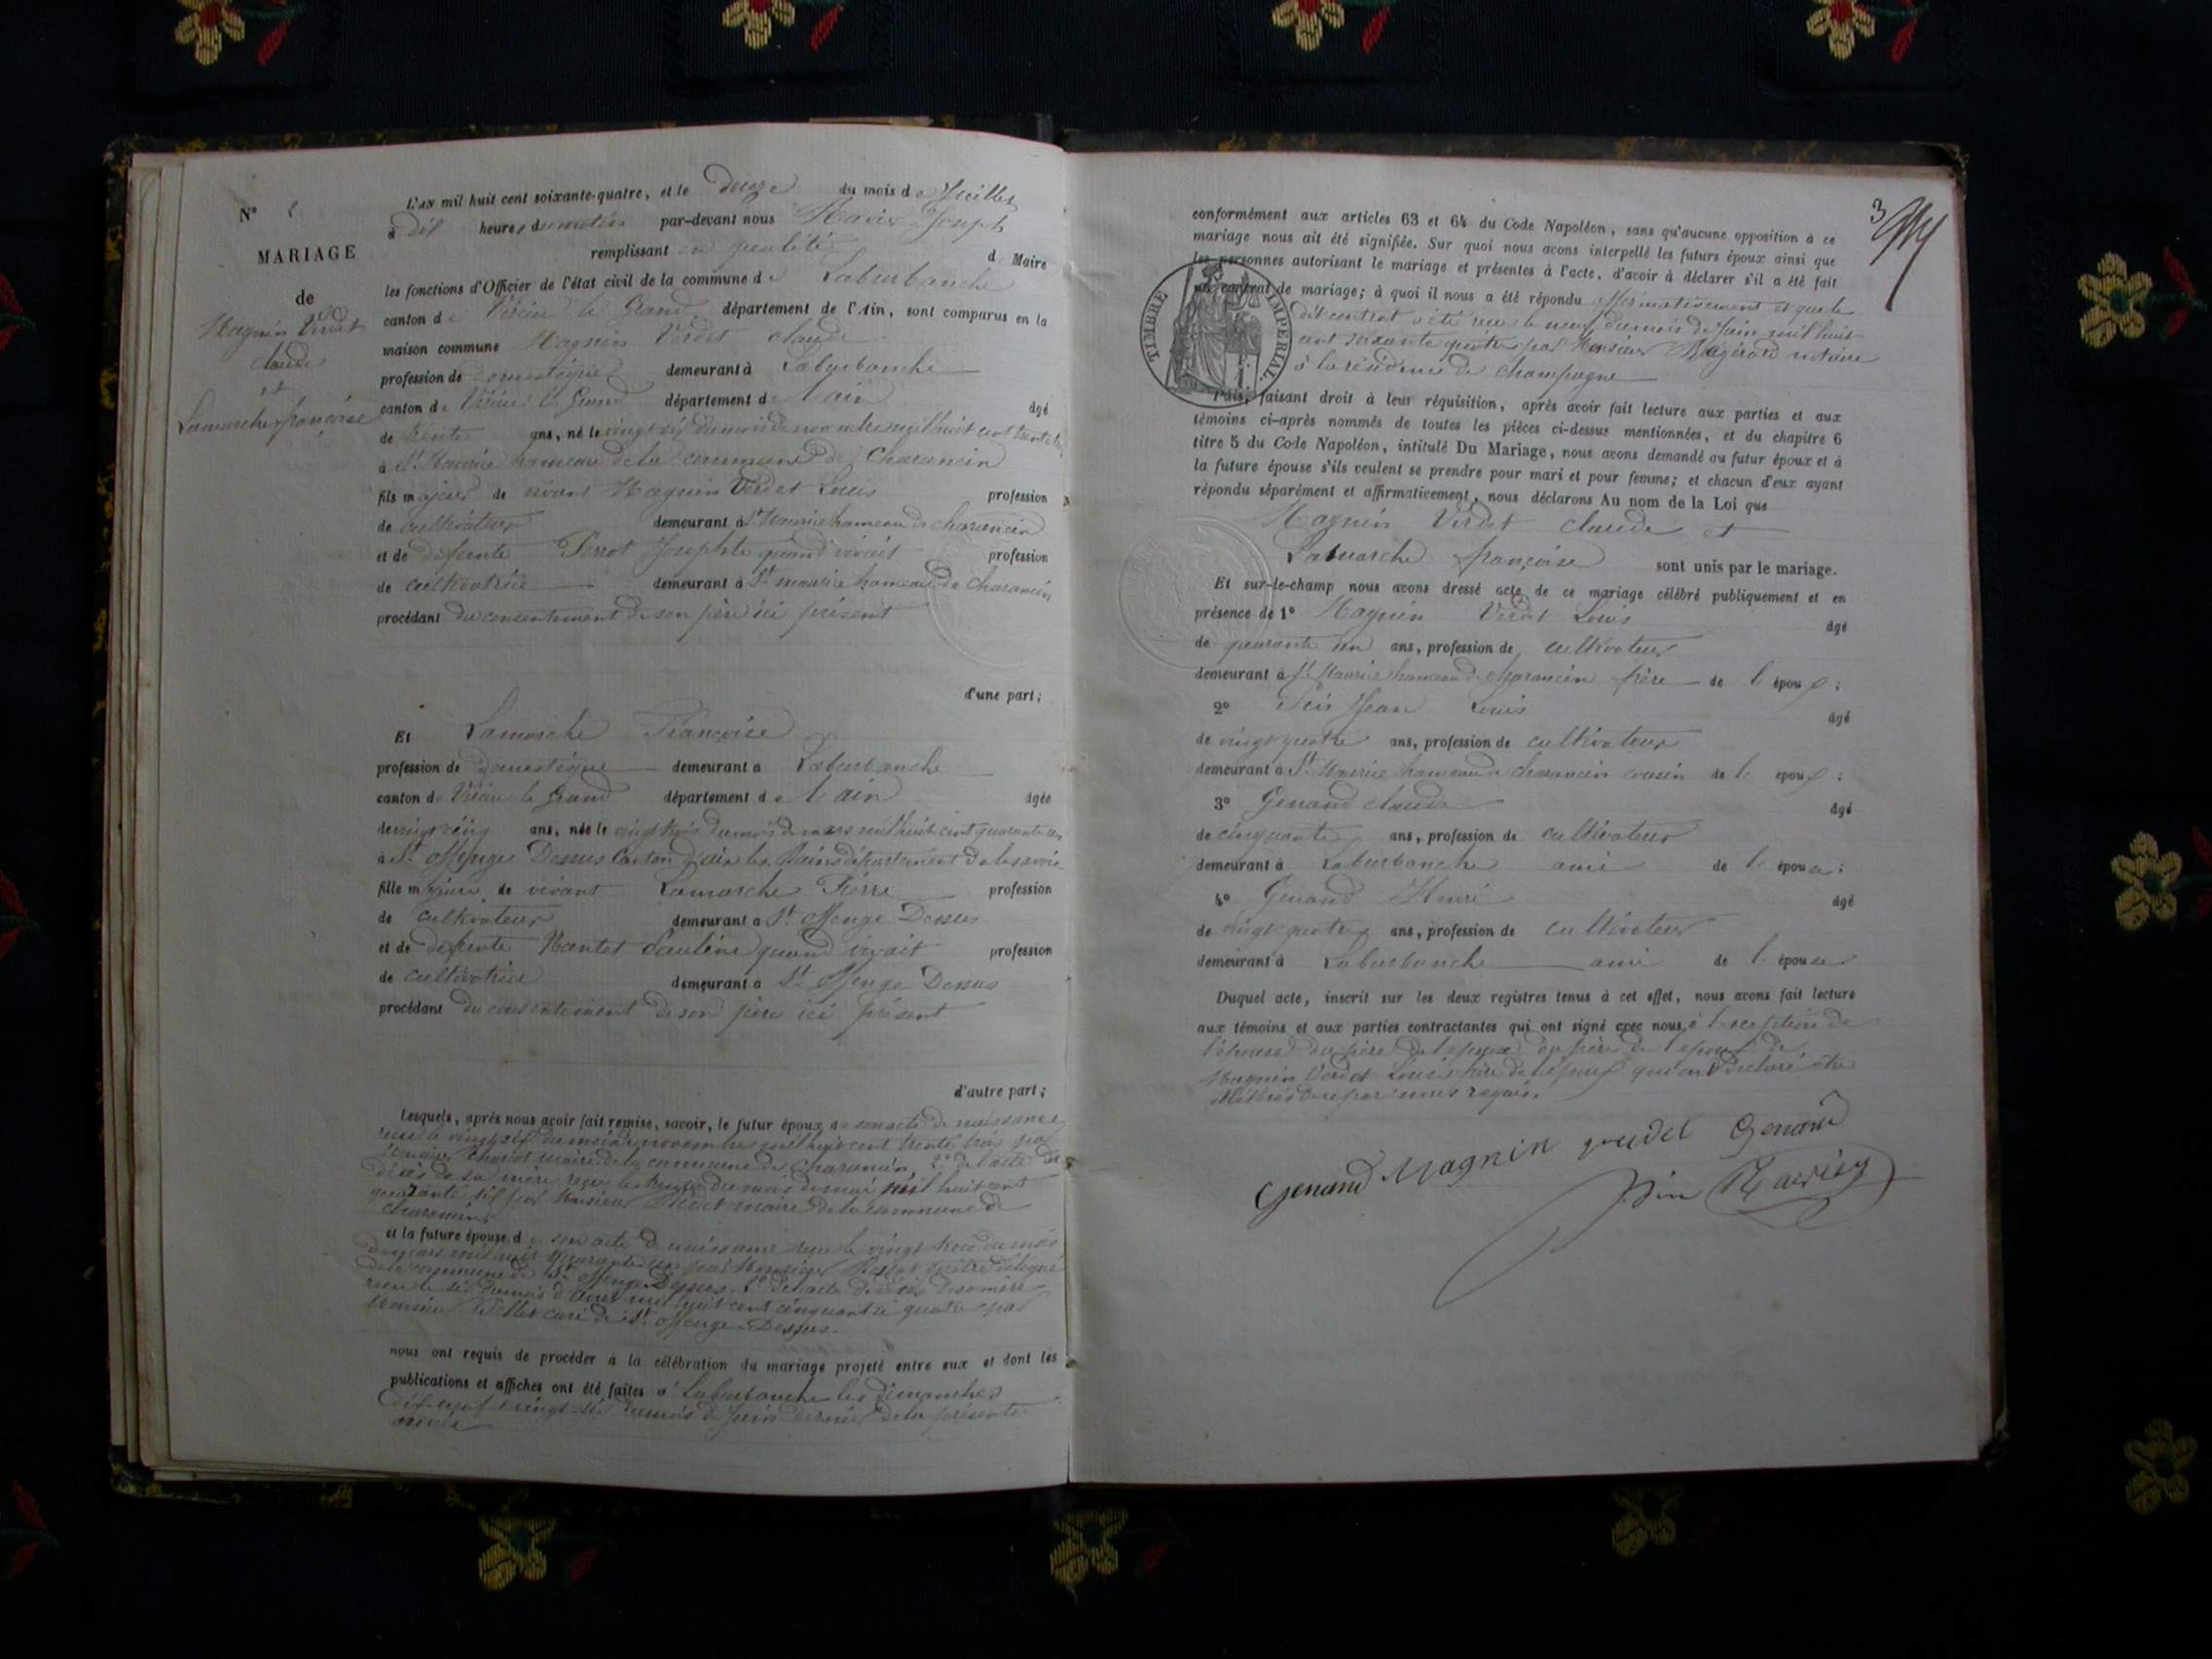 N° 2
MARIAGE
de
Magnin Verdet
Claude
et
Lamarche françoise
L'an mil huit cent soixante-quatre, et le douze du mois de Juillet
à dix heures du matin par-devant nous Joseph
remplissant en qualité d Maire
les fonctions d'Officier de l'état civil de la commune de Laburbanche
canton de Virieu le Grand, département de l'Ain, sont comparus en la
maison commune Magnin Verdet claude
profession de domestique demeurant à Laburbanche
canton de Virieu le Grand département de l'ain âgé
de trente ans, né le vingt six du mois de novembre mil huit cent trente
à St Maurice hameau de la commune de Charancin
fils majeur de vivant Magnin Verdet Louis profession
de cultivateur demeurant à St Maurice hameau de charancin
et de défunte Perrot Josephte quand vivait profession
de cultivatrice demeurant à St maurice hameau de charancin
procédant du consentement de son père ici présent
d'une part;
Et Lamarche Françoise
profession de domestique demeurant à Laburbanche
canton de Virieu le Grand département de l'ain âgée
de vingt ans, née le vingt trois du mois de mars mil huit cent quarante un
à St Offenge Dessus Canton d'aix les Bains département de la savoie
fille majeure de vivant Lamarche Pierre profession
de cultivateur demeurant à St Offenge Dessus
et de défunte Pauline quand vivait profession
de cultivatrice demeurant à St Offenge Dessus
procédant du consentement de son père ici présent
d'autre part;
Lesquels, après nous avoir fait remise, savoir, le futur époux de son acte de naissance
reçu le vingt six du mois de novembre mil huit cent trente trois par
Monsieur maire de la commune de Charancin, 2° de l'acte de
décès de sa mère reçu le du mois de mai mil huit cent
quarante six par Monsieur maire de la commune de
charancin
et la future épouse de son acte de naissance reçu le vingt trois du mois
de mars mil huit quarante un par Monsieur
de la commune de St Offenge Dessus. 2° de l'acte de décès de sa mère
reçu le dix du mois d'août mil huit cent cinquante quatre par
Monsieur curé de St Offenge Dessus.
nous ont requis de procéder à la célébration du mariage projeté entre eux et dont les
publications et affiches ont été faites à Laburbanche les dimanches
dix-neuf et vingt-six du mois de Juin dernier de la présente
année
3
conformément aux articles 63 et 64 du Code Napoléon, sans qu'aucune opposition à ce
mariage nous ait été signifiée. Sur quoi nous avons interpellé les futurs époux ainsi que
les personnes autorisant le mariage et présentes à l'acte, d'avoir à déclarer s'il a été fait
un contrat de mariage; à quoi il nous a été répondu affirmativement et que le
dit contrat a été reçu le neuf du mois de Juin mil huit
cent soixante quatre par Monsieur notaire
à la résidence de Champagne
TIMBRE IMPERIAL.
Puis, faisant droit à leur réquisition, après avoir fait lecture aux parties et aux
témoins ci-après nommés de toutes les pièces ci-dessus mentionnées, et du chapitre 6
titre 5 du Code Napoléon, intitulé Du Mariage, nous avons demandé au futur époux et à
la future épouse s'ils veulent se prendre pour mari et pour femme; et chacun d'eux ayant
répondu séparément et affirmativement, nous déclarons Au nom de la Loi que
Magnin Verdet claude et
Lamarche françoise sont unis par le mariage.
Et sur-le-champ nous avons dressé acte de ce mariage célébré publiquement et en
présence de 1° Magnin Verdet Louis âgé
de quarante un ans, profession de cultivateur
demeurant à St Maurice hameau de Charancin frère de l'époux;
2° Jean Louis âgé
de vingt quatre ans, profession de cultivateur
demeurant à St Maurice hameau de charancin cousin de l'époux;
3° Genand claude âgé
de cinquante ans, profession de cultivateur
demeurant à Laburbanche ami de l'épouse;
4° Genand Henri âgé
de vingt quatre ans, profession de cultivateur
demeurant à Laburbanche ami de l'épouse
Duquel acte, inscrit sur les deux registres tenus à cet effet, nous avons fait lecture
aux témoins et aux parties contractantes qui ont signé avec nous à l'exception de
l'épouse du père de l'époux du père de l'épouse de
Magnin Verdet Louis frère de l'époux qui ont déclaré être
illétrés de ce par nous requis.
Genand Magnin verdet Genand